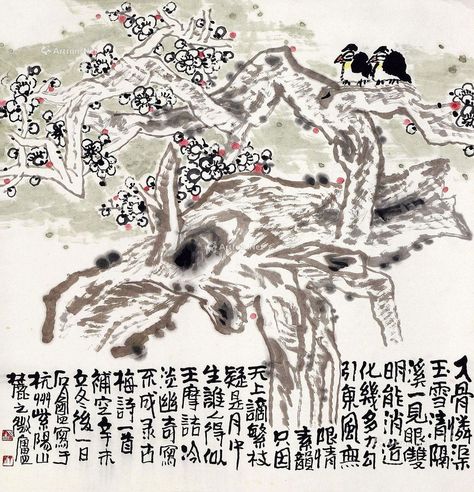 入骨憐渠
玉雪清隔
溪一見眼雙
明能消造
化幾多力勾
引東風無
限情
素韻
只因
天上謫繁枝
疑是月中
生誰人得似
王摩詰冷
淡幽奇寫
不成录古
梅詩一首
補空辛未
立冬後一日
石廬寫于
杭州紫陽山
麓之廬
Artron.Net